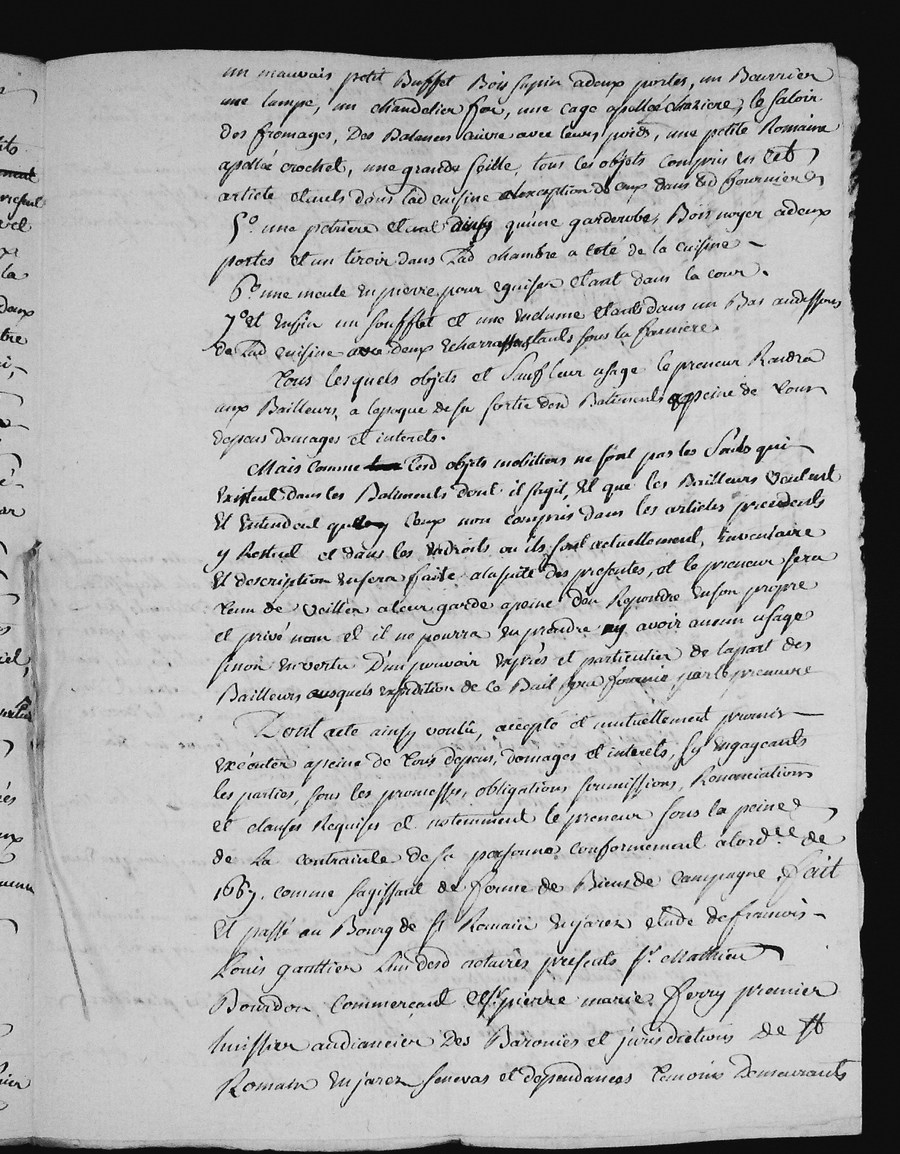 un mauvais petit Buffet Bois sapin adeux portes, un Beurrier
une lampe, un chandelier fer, une cage apellée chaziere, le saloir
des fromages, Des Balances cuivre avec leurs poids, une petite Romaine
apellée crochet, une grande seille, tous les objets compris en cet
article etants dans lad cuisine alexception de ceux dans led fournier
5º. une petriere etant ainsy qu'une garderobe, Bois noyer adeux
portes et un tiroir dans Lad chambre a coté de la cuisine
6º une meule en pierre pour eguiser etant dans la cour.
7º et enfin un soufflet et une enclume etants dans un Bas audessous
de Lad cuisine avec deux etants sous la
Tous lesquels objets et sauf leur usage le preneur Rendra
aux Bailleurs, a lepoque de sa sortie desd Batiments apeine de tous
depens domages et interets.
Mais comme lesd objets mobiliers ne sont pas les seuls qui
Existent dans les Batiments dont il sagit, Et que les Bailleurs veulent
Et Entendent que ceux non compris dans les articles precedents
y Restent et dans les Endroits ou ils sont actuellement, Inventaire
Et description en sera faite alasuite des presentes, et le preneur sera
tenu de veiller aleur garde apeine den Repondre en son propre
et privé nom et il ne pourra en prendre ny avoir aucun usage
sinon en vertu D'un pouvoir exprès et particulier de lapart des
Bailleurs ausquels expedition de ce Bail sera fournie par le preneur
Dont acte ainsy voulu, accepté et mutuellement promis
executer apeine de tous depens, domages et interets, sy engageants
les parties, sous les promesses, obligations soumissions, Renonciations
et clauses Requises et notemment le preneur sous la peine
de La contrainte de sa personne conformement a lord.ce de
1667. comme sagissant de ferme de Biens de campagne. fait
Et passé au Bourg de St Romain enjarez etude de francois
Louis gaultier Lun desd notaires presents sr. Mathieu
Bourdon commercant et sr. pierre marie ferry premier
huissier audiancier Des Baronies et jurisdictions de St
Romain enjarez senevas et dependances temoins Demeurants